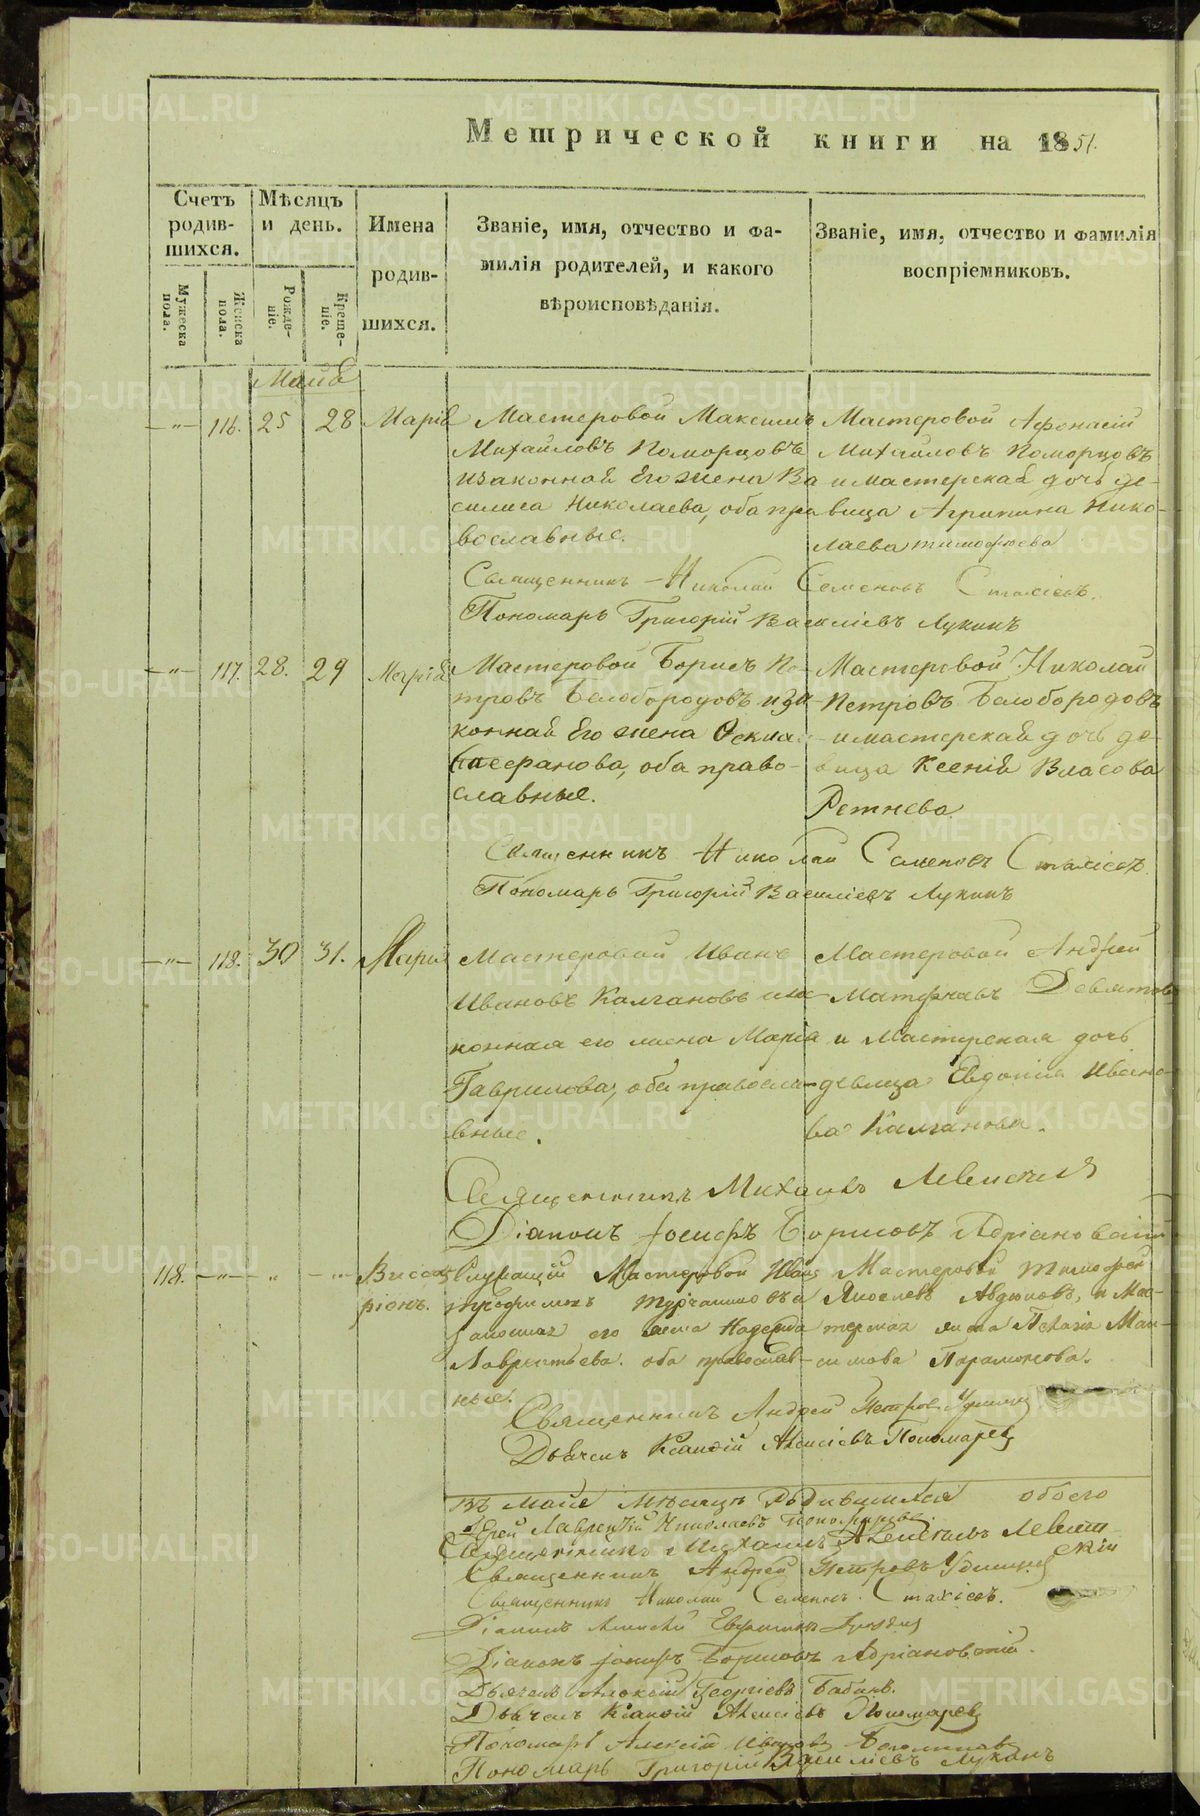 Метрической книги на 1851.
Счетъ родив-шихся.
Мѣсяцъ и день.
Имена родив-шихся.
Званіе, имя, отчество и фа-
милія родителей, и какого
вѣроисповѣданія.
Званіе, имя, отчество и фамилія
воспріемниковъ.
Мужеска пола.
Женска пола.
Рожде-ніе.
Креще-ніе.
Маія
116. 25 28 Марія
Мастеровой Максимъ
Михайловъ Поморцовъ
изаконная его жена Ва
силиса Николаева, оба пра
вославные.
Мастеровой Афонасій
Михайловъ Поморцовъ
и мастерская дочь де-
вица Агрипина Нико-
лаева тимофеева
Священникъ Николай Семеновъ Стахіевъ.
Пономарь Григорій Василіевъ Лукинъ
117. 28. 29 Марія
Мастеровой Борисъ Пе-
тровъ Белобородовъ изa-
конная его жена
оба право-
славные.
Мастеровой Николай
Петровъ Белобородовъ
и мастерская дочь де-
вица Ксенія Власова
Ретнева
Священникъ Николай Семеновъ Стахіевъ
Пономарь Григорій Василіевъ Лукинъ
118. 30 31. Марія
Мастеровой Иванъ
Ивановъ Калгановъ иза
конная его жена Марія
Гаврилова, оба правосла-
вные.
Мастеровой Андрей
Матфеевъ Девятов
и Мастерская дочь
девица Евдокія Ивано-
ва Калганова.
Священникъ Михаилъ Левитскій
Діаконъ Іосифъ Борисовъ Адріановскій
118. Виссаріонъ.
Служащій Мастеровой Иванъ
Трефиловъ Турчаниновъ и
законная его жена Надежда
Лаврентьева. оба православ-
ные.
Мастеровой Тимофей
Яковлевъ Авдюковъ, и Мас-
терская жена Пелагія Мак-
симова Парамонова.
Священникъ Андрей Петровъ Удинцевъ
Дьячекъ Ксанфій Алексіевъ Пономаревъ
Въ Маіе Месяце Родившихся обоего
Іерей Лаврентій Николаевъ
Священникъ Михаилъ Алексіевъ Левит-
скій
Священникъ Андрей Петровъ Удинцевъ
Священникъ Николай Семеновъ Стахіевъ.
Діаконъ Алексій
Діаконъ Іосифъ Борисовъ Адріановскій.
Дьячекъ Алексій Георгіевъ Бабинъ.
Дьячекъ Ксанфій Алексіевъ Пономаревъ
Пономарь Алексій Ивановъ
Пономарь Григорій Василіевъ Лукинъ
METRIKI.GASO-URAL.RU